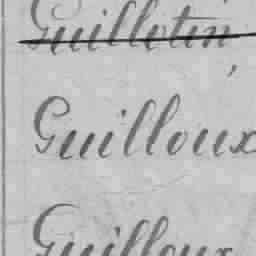 Guillotin
Guilloux
Guilloux